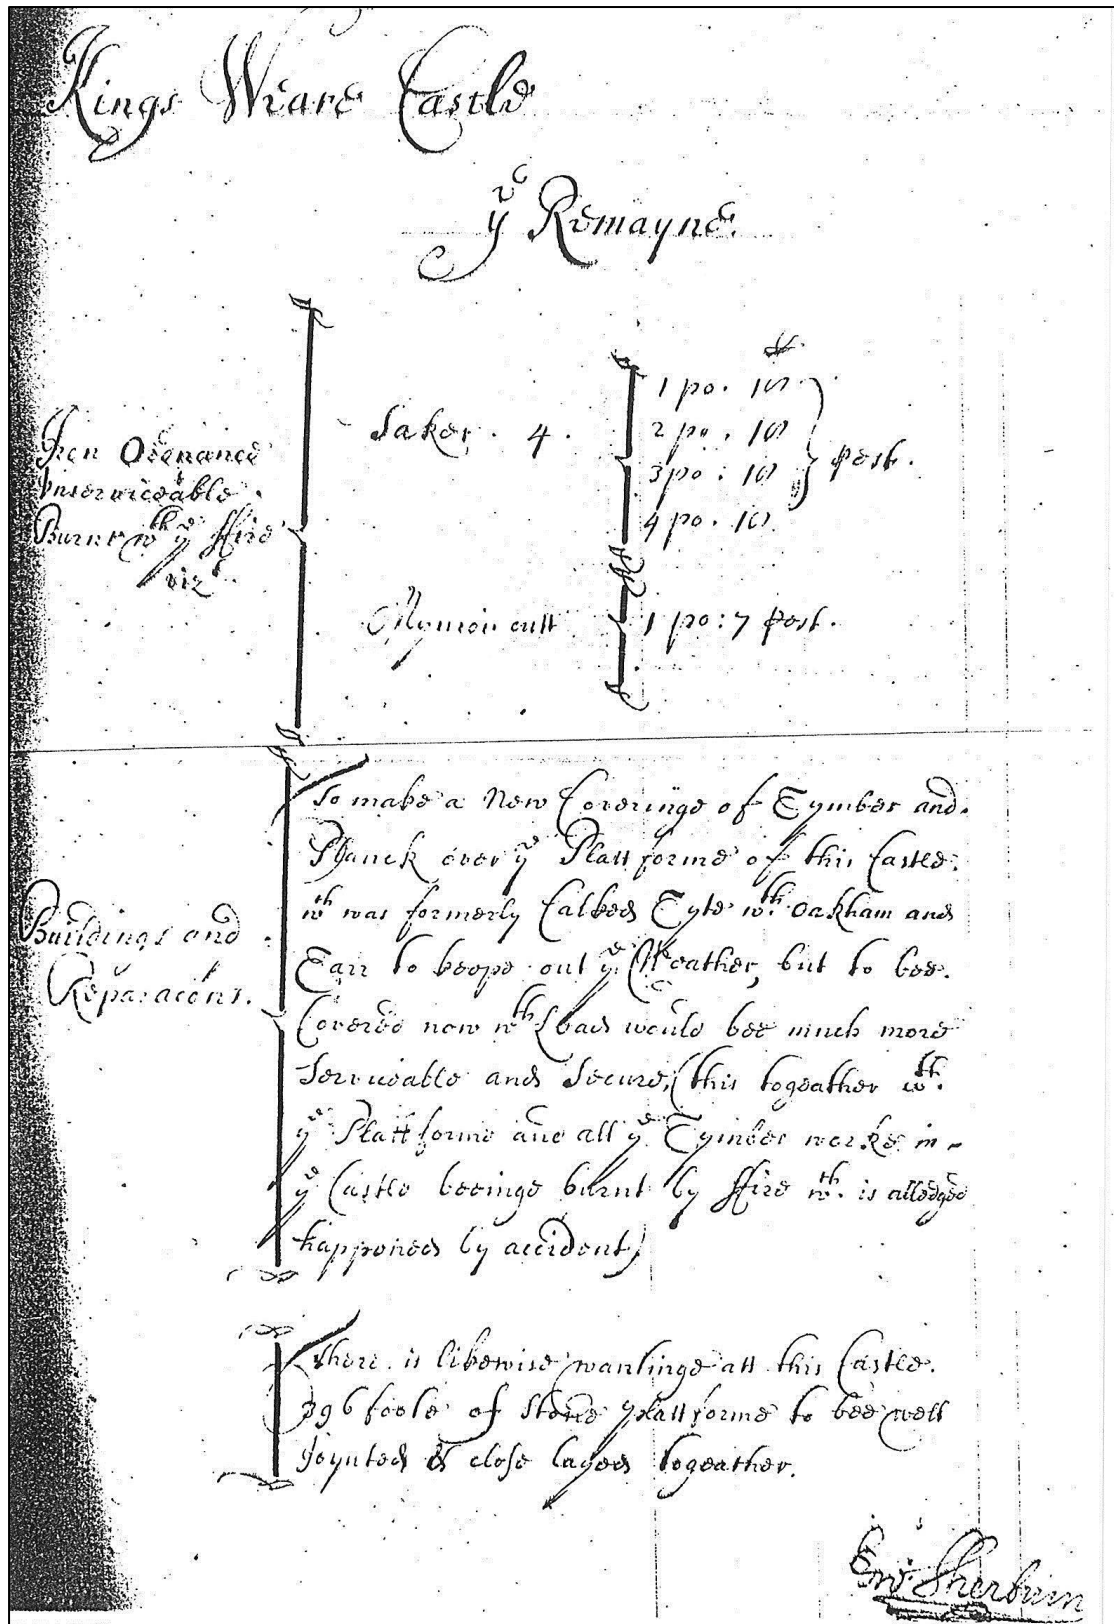 Kings Weare Castle
yᵉ Remayne.
Iron Ordnance
Unserviceable
Burnt wᵗʰ yᵉ ffire
vizᵗ
Saker . 4 .
1 po . 10
2 po . 10
3 po : 10
4 po . 10
foot .
Mynion cutt
1 po : 7 foot .
To make a New Coveringe of Tymber and
Planck over yᵉ Plattforme of this Castle.
wᶜʰ was formerly Calked Tyte wᵗʰ Oakham and
Tarr to keepe out yᵉ Weather, but to bee.
Covered now wᵗʰ Lead would bee much more
Serviceable and Secure, (this togeather wᵗʰ.
yᵉ Plattforme and all yᵉ Tymber worke in
yᵉ Castle beeinge burnt by ffire wᶜʰ. is alledged
happoned by accident)
Buildings and
Reparacons.
There is likewise wantinge att this Castle.
396 foote of Stone plattforme to bee well
Joynted & close layed togeather.
Edw: Sherburn